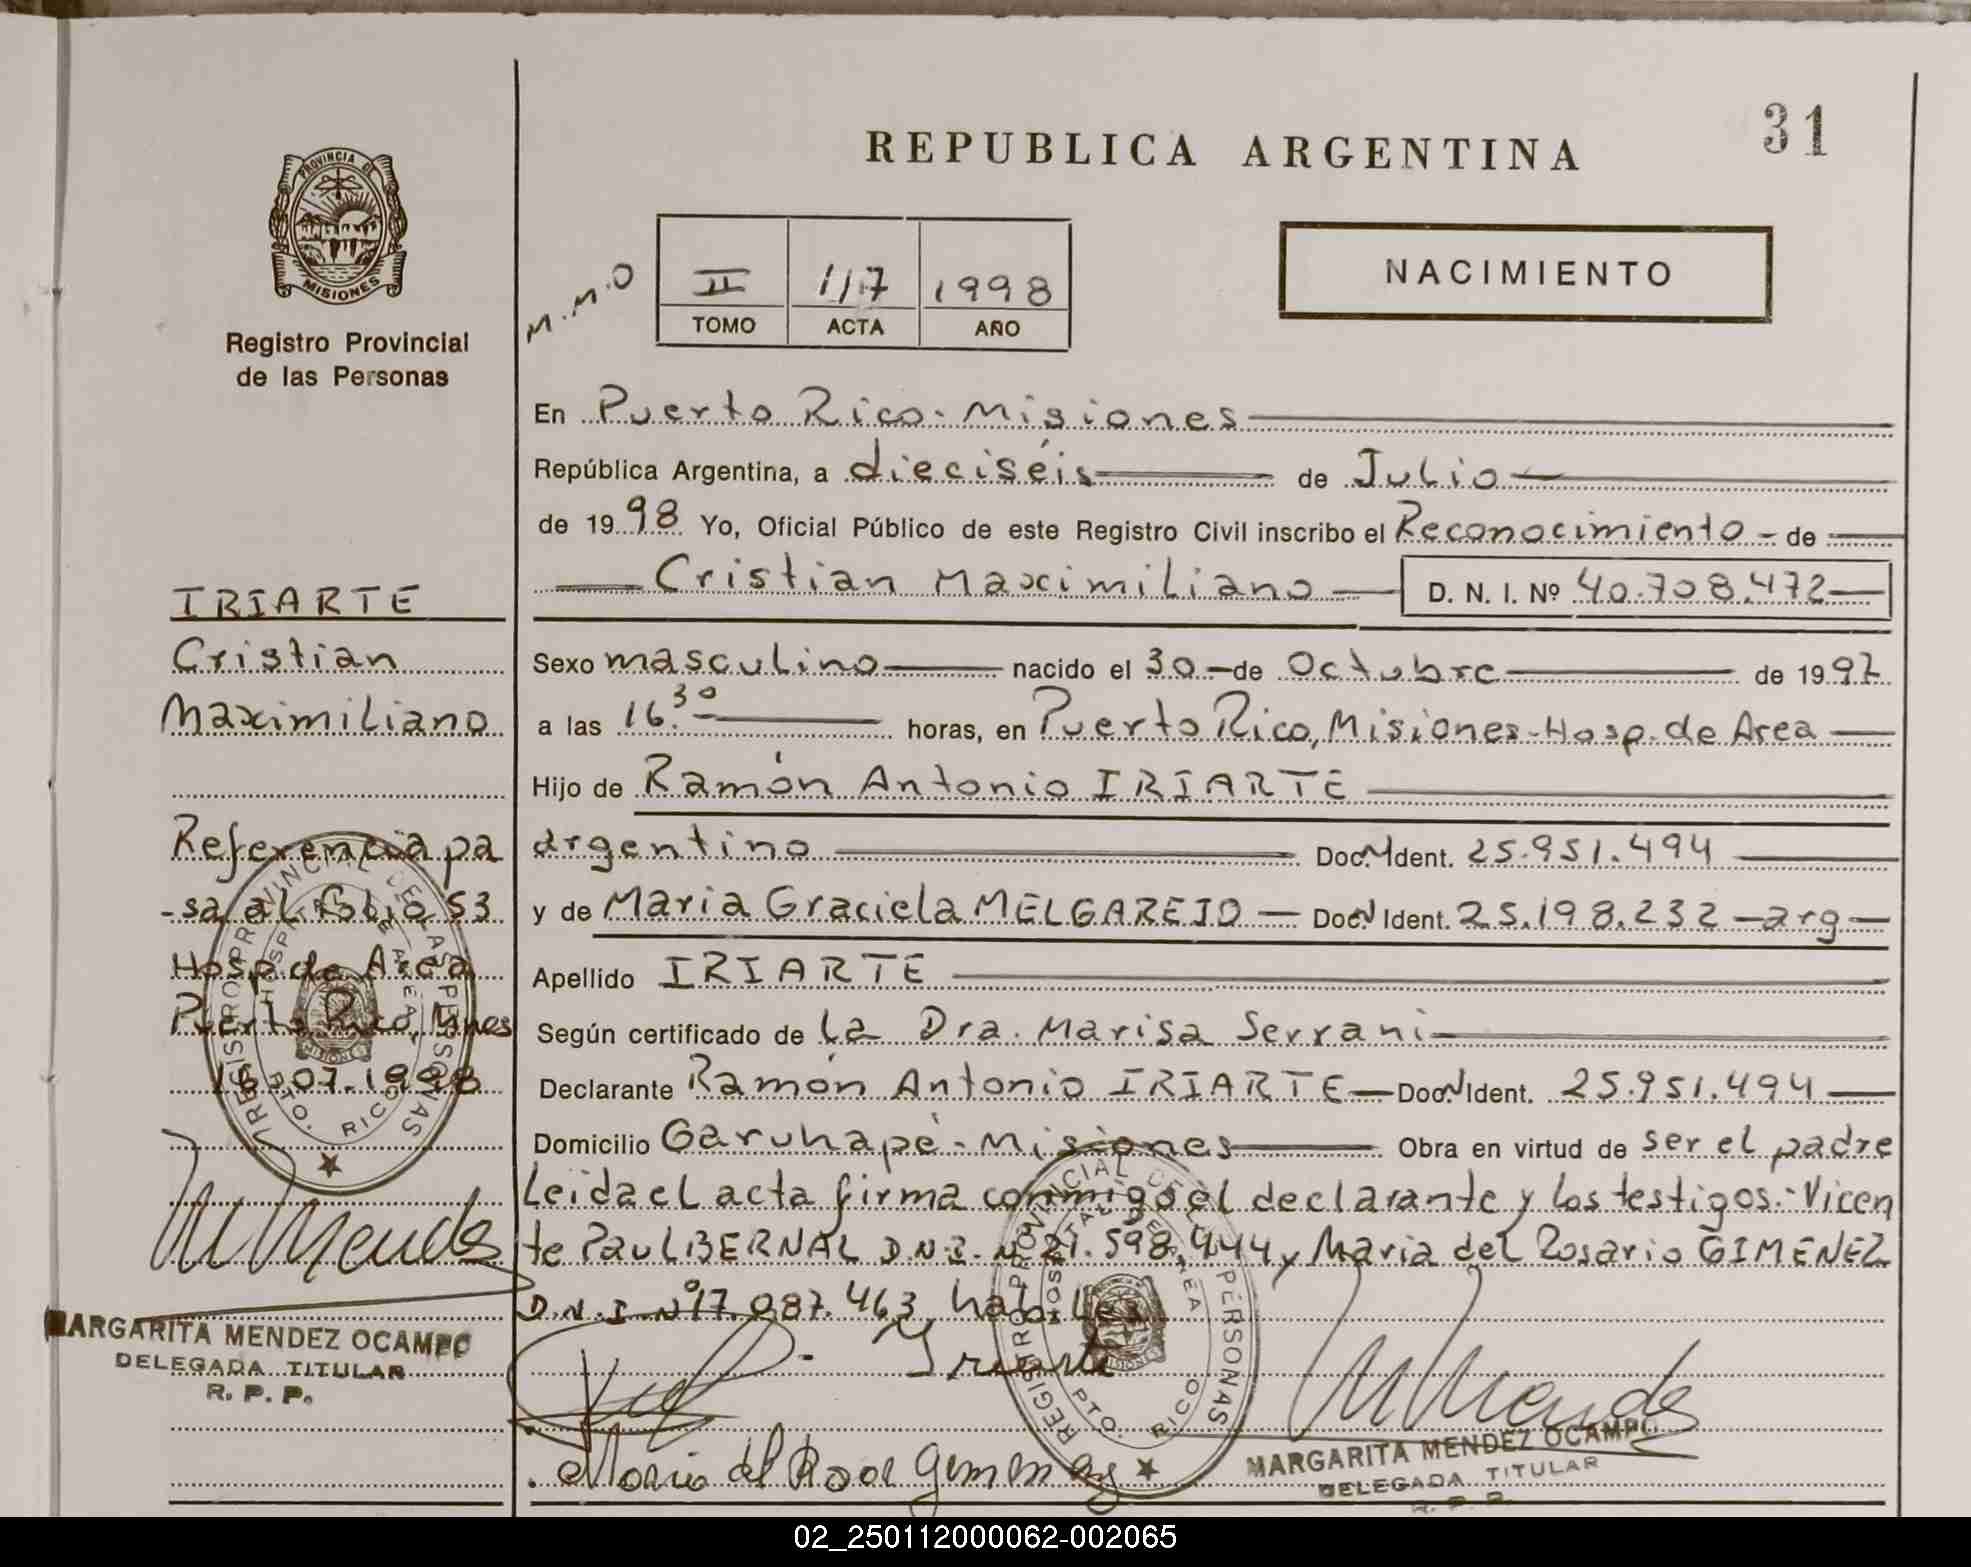 REPUBLICA ARGENTINA
31
PROVINCIA DE
MISIONES
Registro Provincial
de las Personas
M.M.O
II 117 1998
TOMO ACTA AÑO
NACIMIENTO
En Puerto Rico - Misiones
República Argentina, a dieciséis de Julio
de 1998 Yo, Oficial Público de este Registro Civil inscribo el Reconocimiento - de
Cristian Maximiliano D. N. I. Nº 40.708.472
Sexo masculino nacido el 30 - de Octubre de 1997
a las 16.30 horas, en Puerto Rico, Misiones - Hosp. de Area
Hijo de Ramón Antonio IRIARTE
argentino Doc. N Ident. 25.951.494
y de Maria Graciela MELGAREJO - Doc. N Ident. 25.198.232 - arg -
Apellido IRIARTE
Según certificado de la Dra. Marisa Serrani
Declarante Ramón Antonio IRIARTE - Doc. N Ident. 25.951.494
Domicilio Garuhapé - Misiones Obra en virtud de ser el padre
Leida el acta firma conmigo el declarante y los testigos: Vicen
te Paul BERNAL D.N.I. Nº 21.598.944 y Maria del Rosario GIMENEZ
D.N.I Nº 17.087.463, habiles
Iriarte
Maria del Rosa Gimenez
MARGARITA MENDEZ OCAMPO
DELEGADA TITULAR
R. P. P.
REGISTRO PROVINCIAL DE LAS PERSONAS
HOSPITAL DE AREA
PTO. RICO
MISIONES
IRIARTE
Cristian
Maximiliano
Referencia pa
-sa al folio 53
Hosp. de Area
Puerto Rico, Mnes
16.07.1998
M Mendez
MARGARITA MENDEZ OCAMPO
DELEGADA TITULAR
R. P. P.
REGISTRO PROVINCIAL DE LAS PERSONAS
HOSPITAL DE AREA
PTO. RICO
MISIONES
02_250112000062-002065